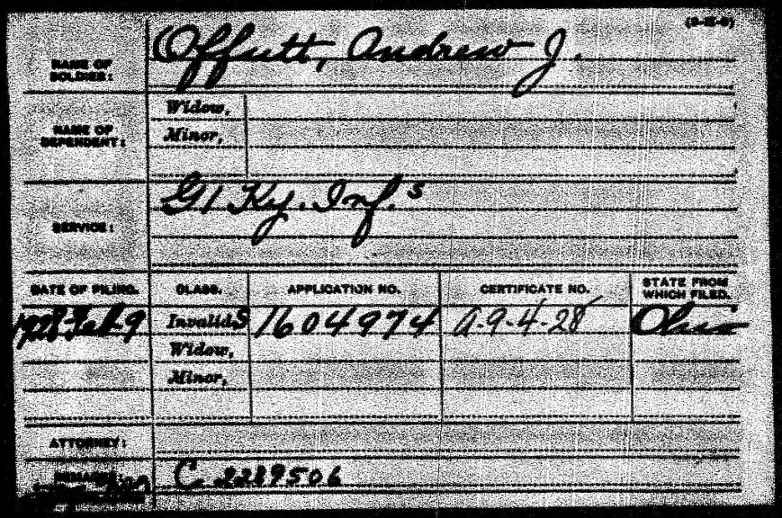 Offutt, Andrew J.
NAME OF SOLDIER:
NAME OF DEPENDENT:
Widow,
Minor,
SERVICE:
G 1 Ky. Inf. S
DATE OF FILING. CLASS. APPLICATION NO. CERTIFICATE NO. STATE FROM WHICH FILED.
1928 Feb-9 Invalid, S 1604974 A-9-4-28 Ohio
Widow,
Minor,
ATTORNEY:
C 2289506